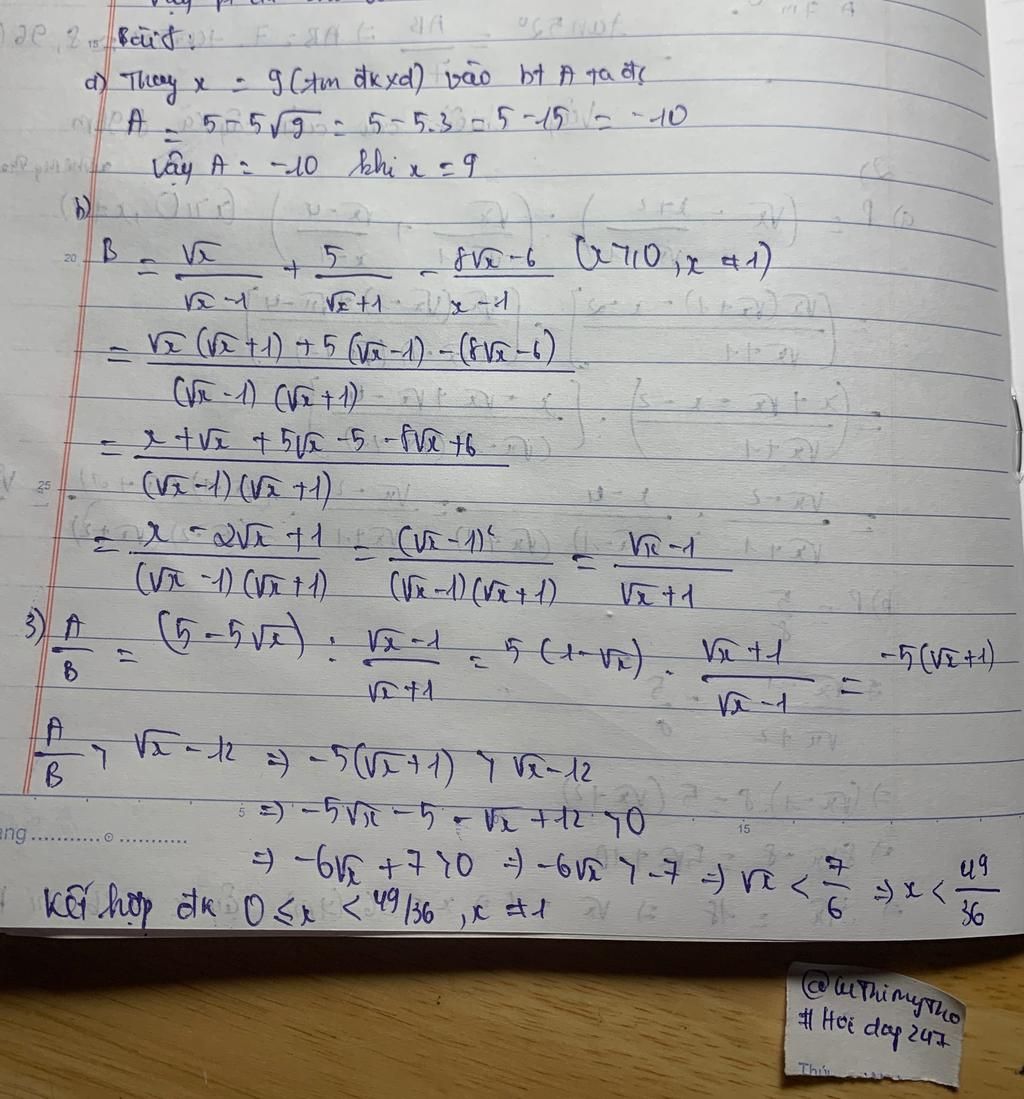 Bài 1:
a) Thay x = 9 (tm đkxđ) vào bt A ta đc
A = 5 - 5√9 = 5 - 5.3 = 5 - 15 = -10
Vậy A = -10 khi x = 9
b)
B = √x/(√x - 1) + 5/(√x + 1) - (8√x - 6)/(x - 1) (x ≥ 0, x ≠ 1)
= (√x (√x + 1) + 5(√x - 1) - (8√x - 6))/((√x - 1) (√x + 1))
= (x + √x + 5√x - 5 - 8√x + 6)/((√x - 1)(√x + 1))
= (x - 2√x + 1)/((√x - 1)(√x + 1)) = (√x - 1)²/((√x - 1)(√x + 1)) = (√x - 1)/(√x + 1)
3) A/B = (5 - 5√x) : (√x - 1)/(√x + 1) = 5 (1 - √x) . (√x + 1)/(√x - 1) = -5(√x + 1)
A/B > √x - 12 => -5(√x + 1) > √x - 12
=> -5√x - 5 - √x + 12 > 0
=> -6√x + 7 > 0 => -6√x > -7 => √x < 7/6 => x < 49/36
Kết hợp đk 0 ≤ x < 49/36, x ≠ 1
@LeThiMyTho
# Hoi dap 247